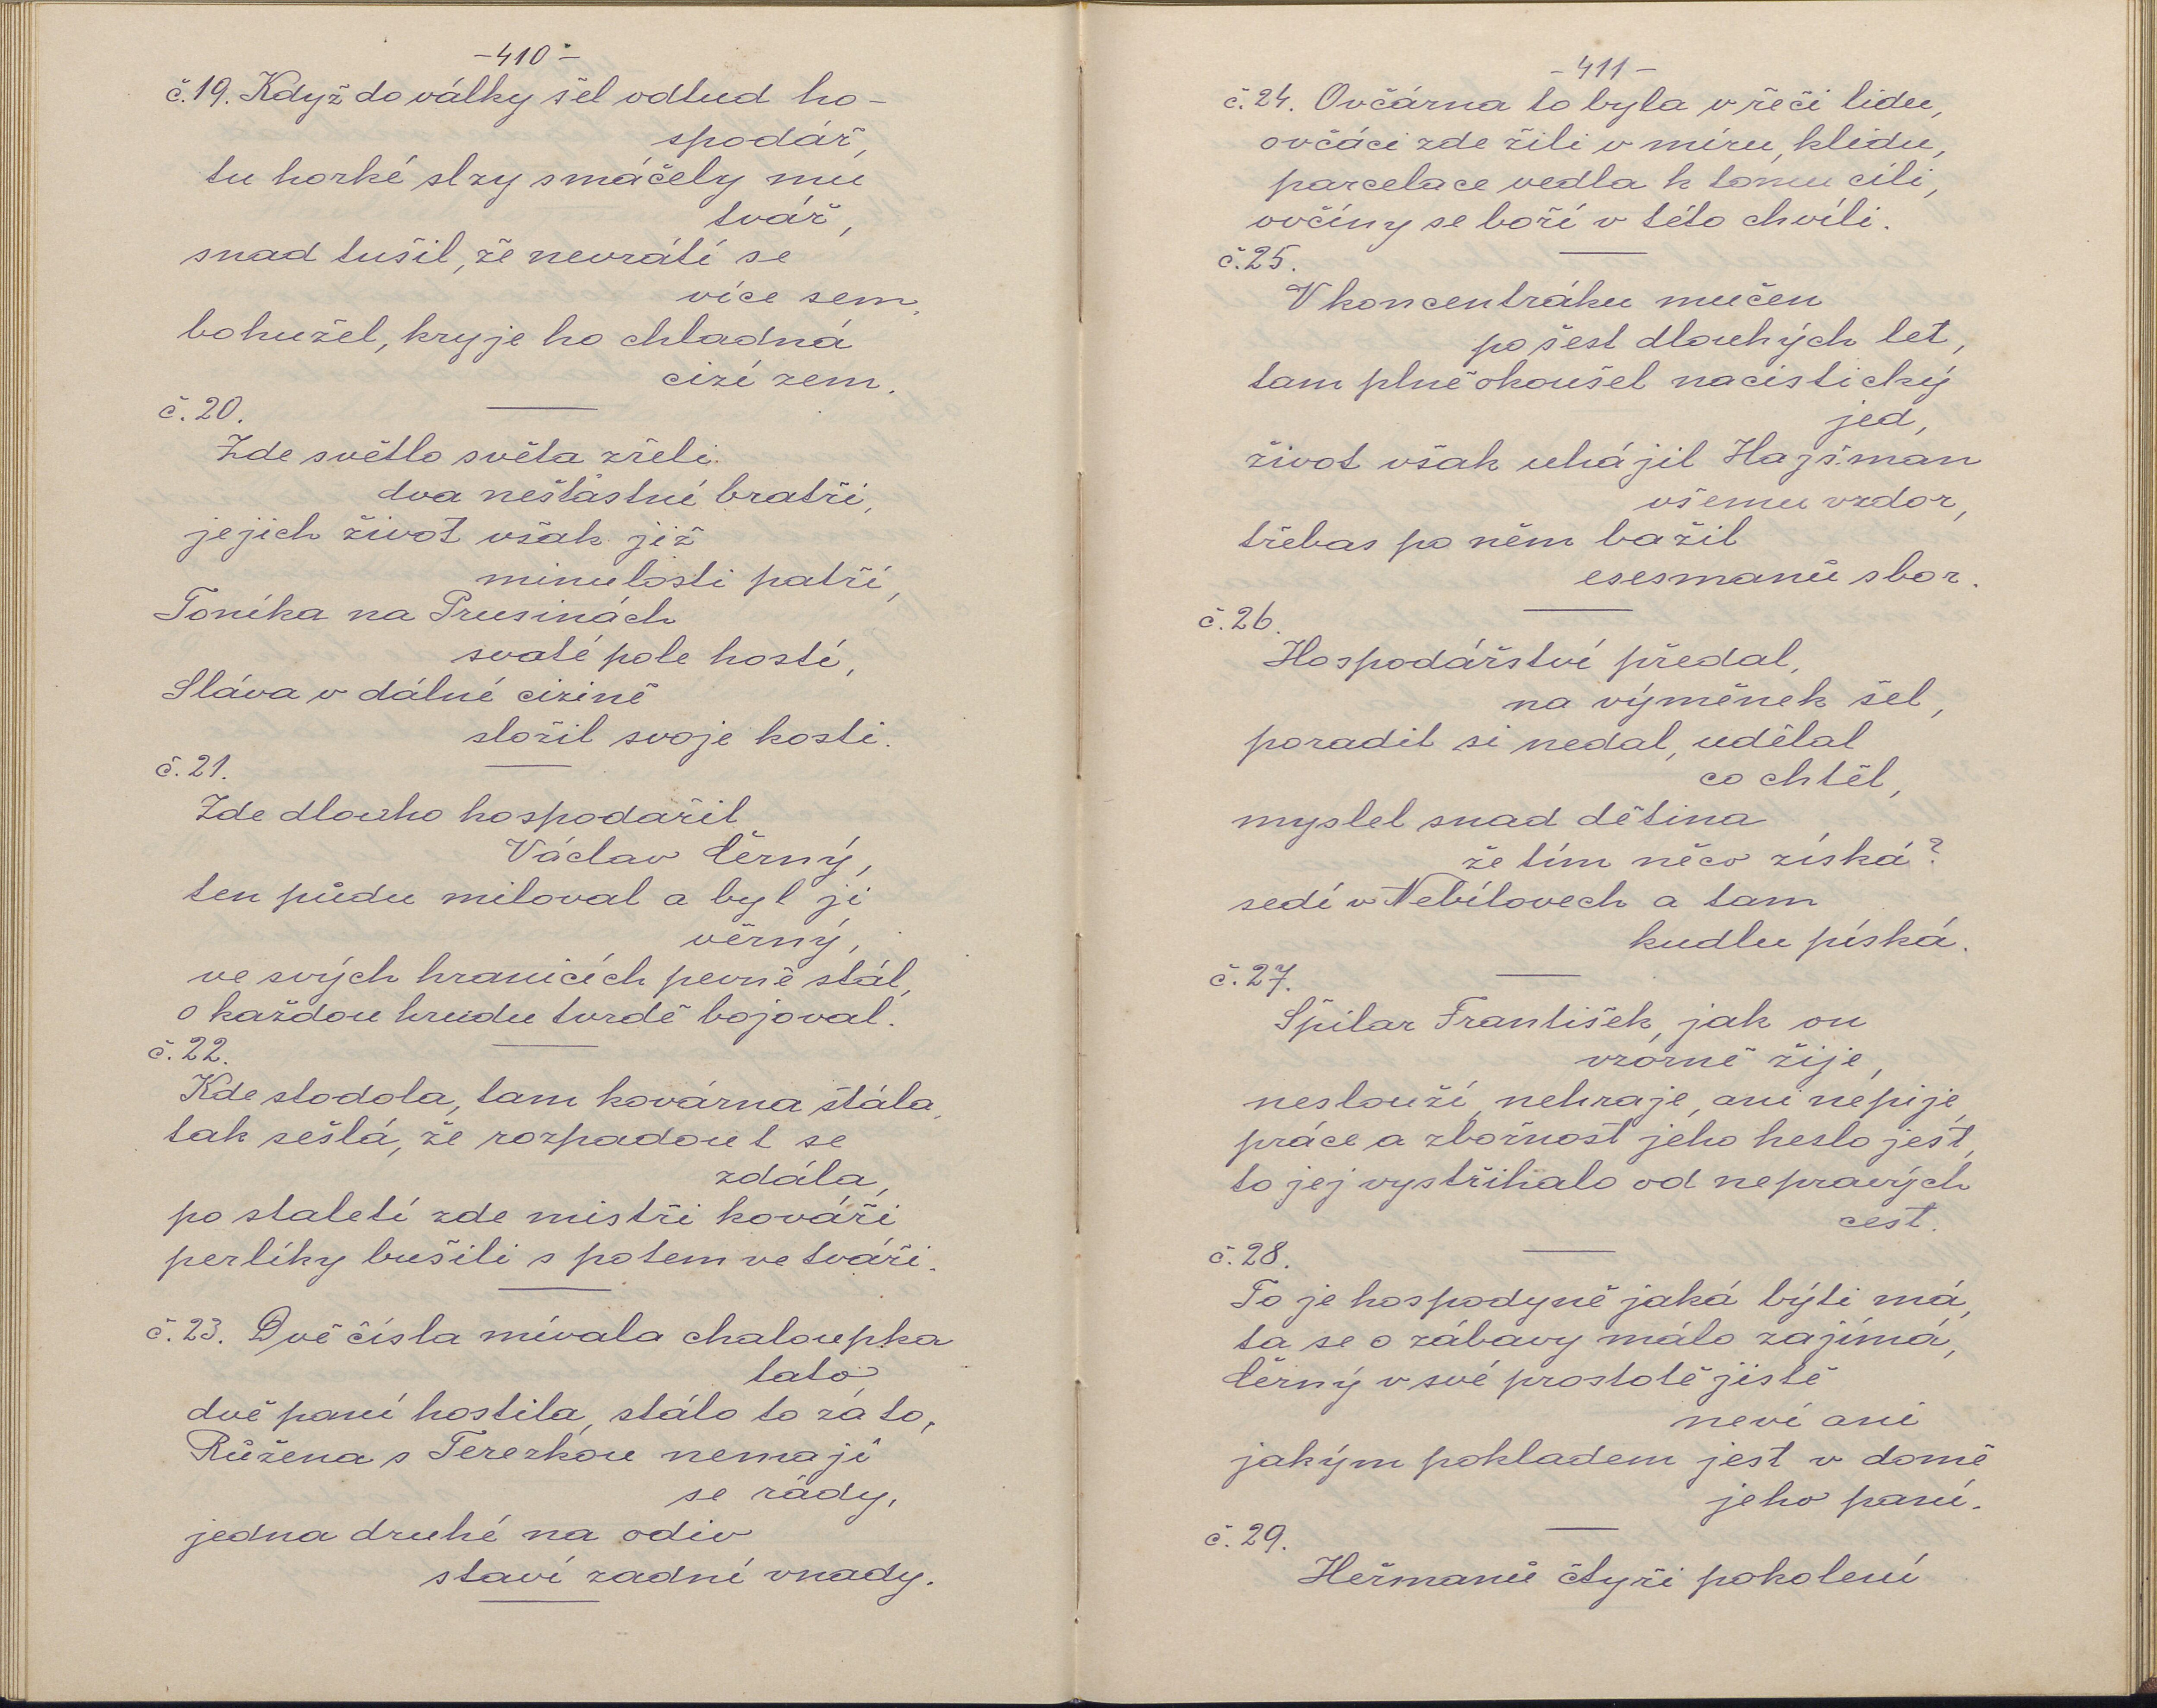 -410-
č.19. Když do války šel odtud ho-
spodář,
tu horké slzy smáčely mu
tvář,
snad tušil, že nevrátí se
více sem,
bohužel, kryje ho chladná
cizí zem.
č.20.
Zde světlo světa zřeli
dva nešťastní bratři,
jejich život však již
minulosti patří,
Toníka na Prusinách
svaté pole hostí,
Sláva v dálné cizině
složil svoje kosti.
č.21.
Zde dlouho hospodařil
Václav Černý,
ten půdu miloval a byl jí
věrný,
ve svých hranicích pevně stál,
o každou hrudu tvrdě bojoval.
č.22.
Kde stodola, tam kovárna stála,
tak sešlá, že rozpadout se
zdála,
po staletí zde mistři kováři
perlíky bušili s potem ve tváři.
č.23. Dvě čísla mívala chaloupka
tato,
dvě paní hostila, stálo to za to,
Růžena s Terezkou nemají
se rády,
jedna druhé na odiv
staví zadní vnady.
-411-
č.24. Ovčárna to byla v řeči lidu,
ovčáci zde žili v míru, klidu,
parcelace vedla k tomu cíli,
ovčíny se boří v této chvíli.
č.25.
V koncentráku mučen
po šest dlouhých let,
tam plně okoušel nacistický
jed,
život však uhájil Hajšman
všemu vzdor,
třebas po něm bažil
esesmanů sbor.
č.26.
Hospodářství předal,
na výměnek šel,
poradit si nedal, udělal
co chtěl,
myslel snad dětina
že tím něco získá?
sedí v Nebílovech a tam
kudlu píská.
č.27.
Špilar František, jak on
vzorně žije,
neslouží, nehraje, ani nepije,
práce a zbožnost jeho heslo jest,
to jej vystříhalo od nepravých
cest.
č.28.
To je hospodyně jaká býti má,
ta se o zábavy málo zajímá,
Černý v své prostotě jistě
neví ani
jakým pokladem jest v domě
jeho paní.
č.29.
Heřmanů čtyři pokolení